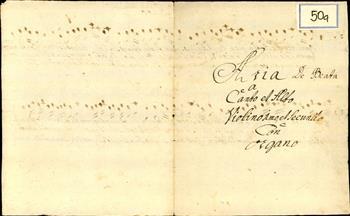 50a
Aria De Beata
a
Canto et Alto
Violino Imo et Secundo
Con
Organo